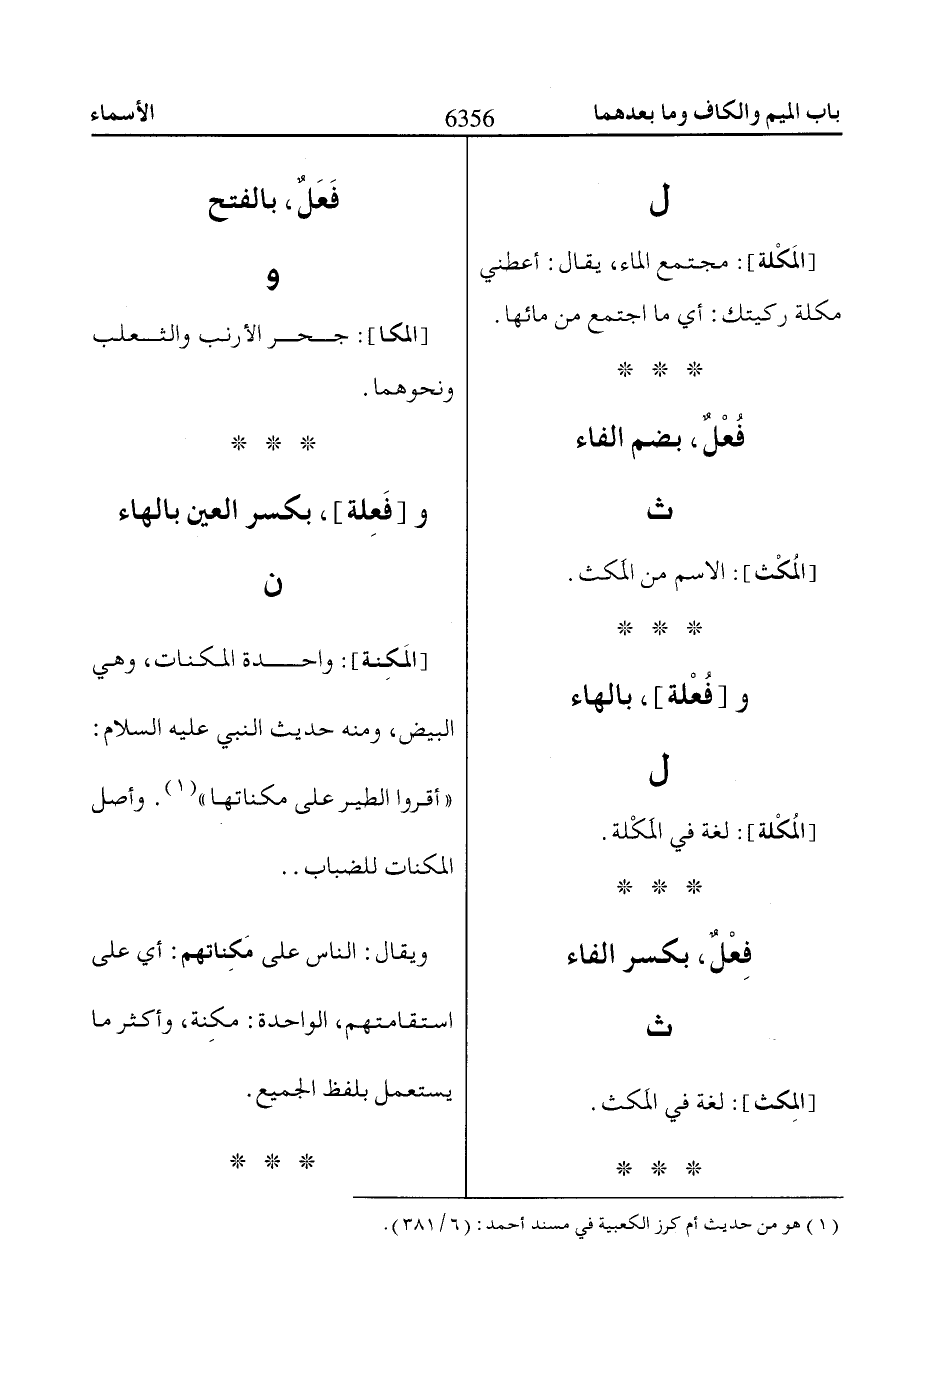 باب الميم والكاف وما بعدهما 6356 الأسماء
ل
[المَكْلة]: مجتمع الماء، يقال: أعطني
مكلة ركيتك: أي ما اجتمع من مائها.
* * *
فُعْلٌ، بضم الفاء
ث
[المُكْث]: الاسم من المَكث.
* * *
و [فُعْلة]، بالهاء
ل
[المُكْلة]: لغة في المَكْلة.
* * *
فِعْلٌ، بكسر الفاء
ث
[المِكث]: لغة في المَكث.
* * *
فَعَلٌ، بالفتح
و
[المكا]: جحر الأرنب والثعلب
ونحوهما.
* * *
و [فَعِلة]، بكسر العين بالهاء
ن
[المَكِنة]: واحدة المكنات، وهي
البيض، ومنه حديث النبي عليه السلام:
«أقروا الطير على مكناتها»(١). وأصل
المكنات للضباب..
ويقال: الناس على مَكِناتهم: أي على
استقامتهم، الواحدة: مكِنة، وأكثر ما
يستعمل بلفظ الجميع.
* * *
(١) هو من حديث أم كرز الكعبية في مسند أحمد: (٦/ ٣٨١).